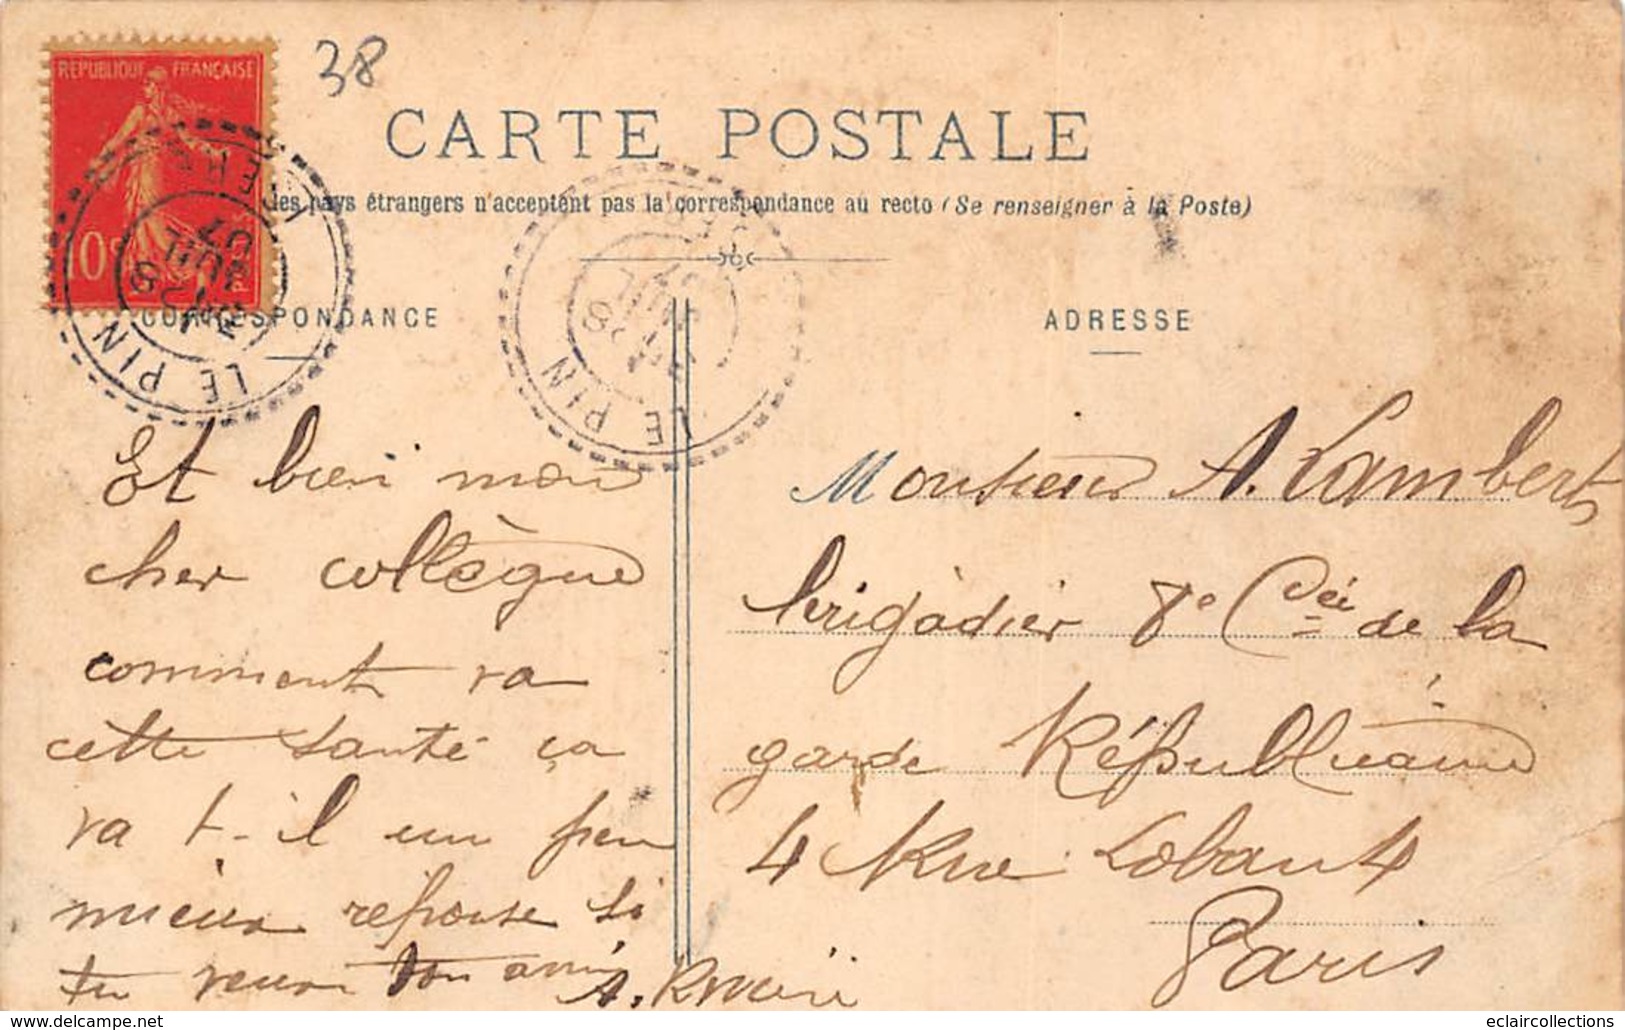 38
REPUBLIQUE FRANÇAISE
10c
CARTE POSTALE
des pays étrangers n'acceptent pas la correspondance au recto (Se renseigner à la Poste)
LE PIN
ISERE
28
JUIL
07
LE PIN
28
07
CORRESPONDANCE
Et bien mon
cher collègue
comment va
cette santé ça
va t-il un peu
mieux réponse si
tu veux ton ami
A.
ADRESSE
Monsieur A. Lambert
brigadier 8e Cie de la
garde Républicaine
4 Rue Lobau 4
Paris
https://www.delcampe.net
eclaircollections